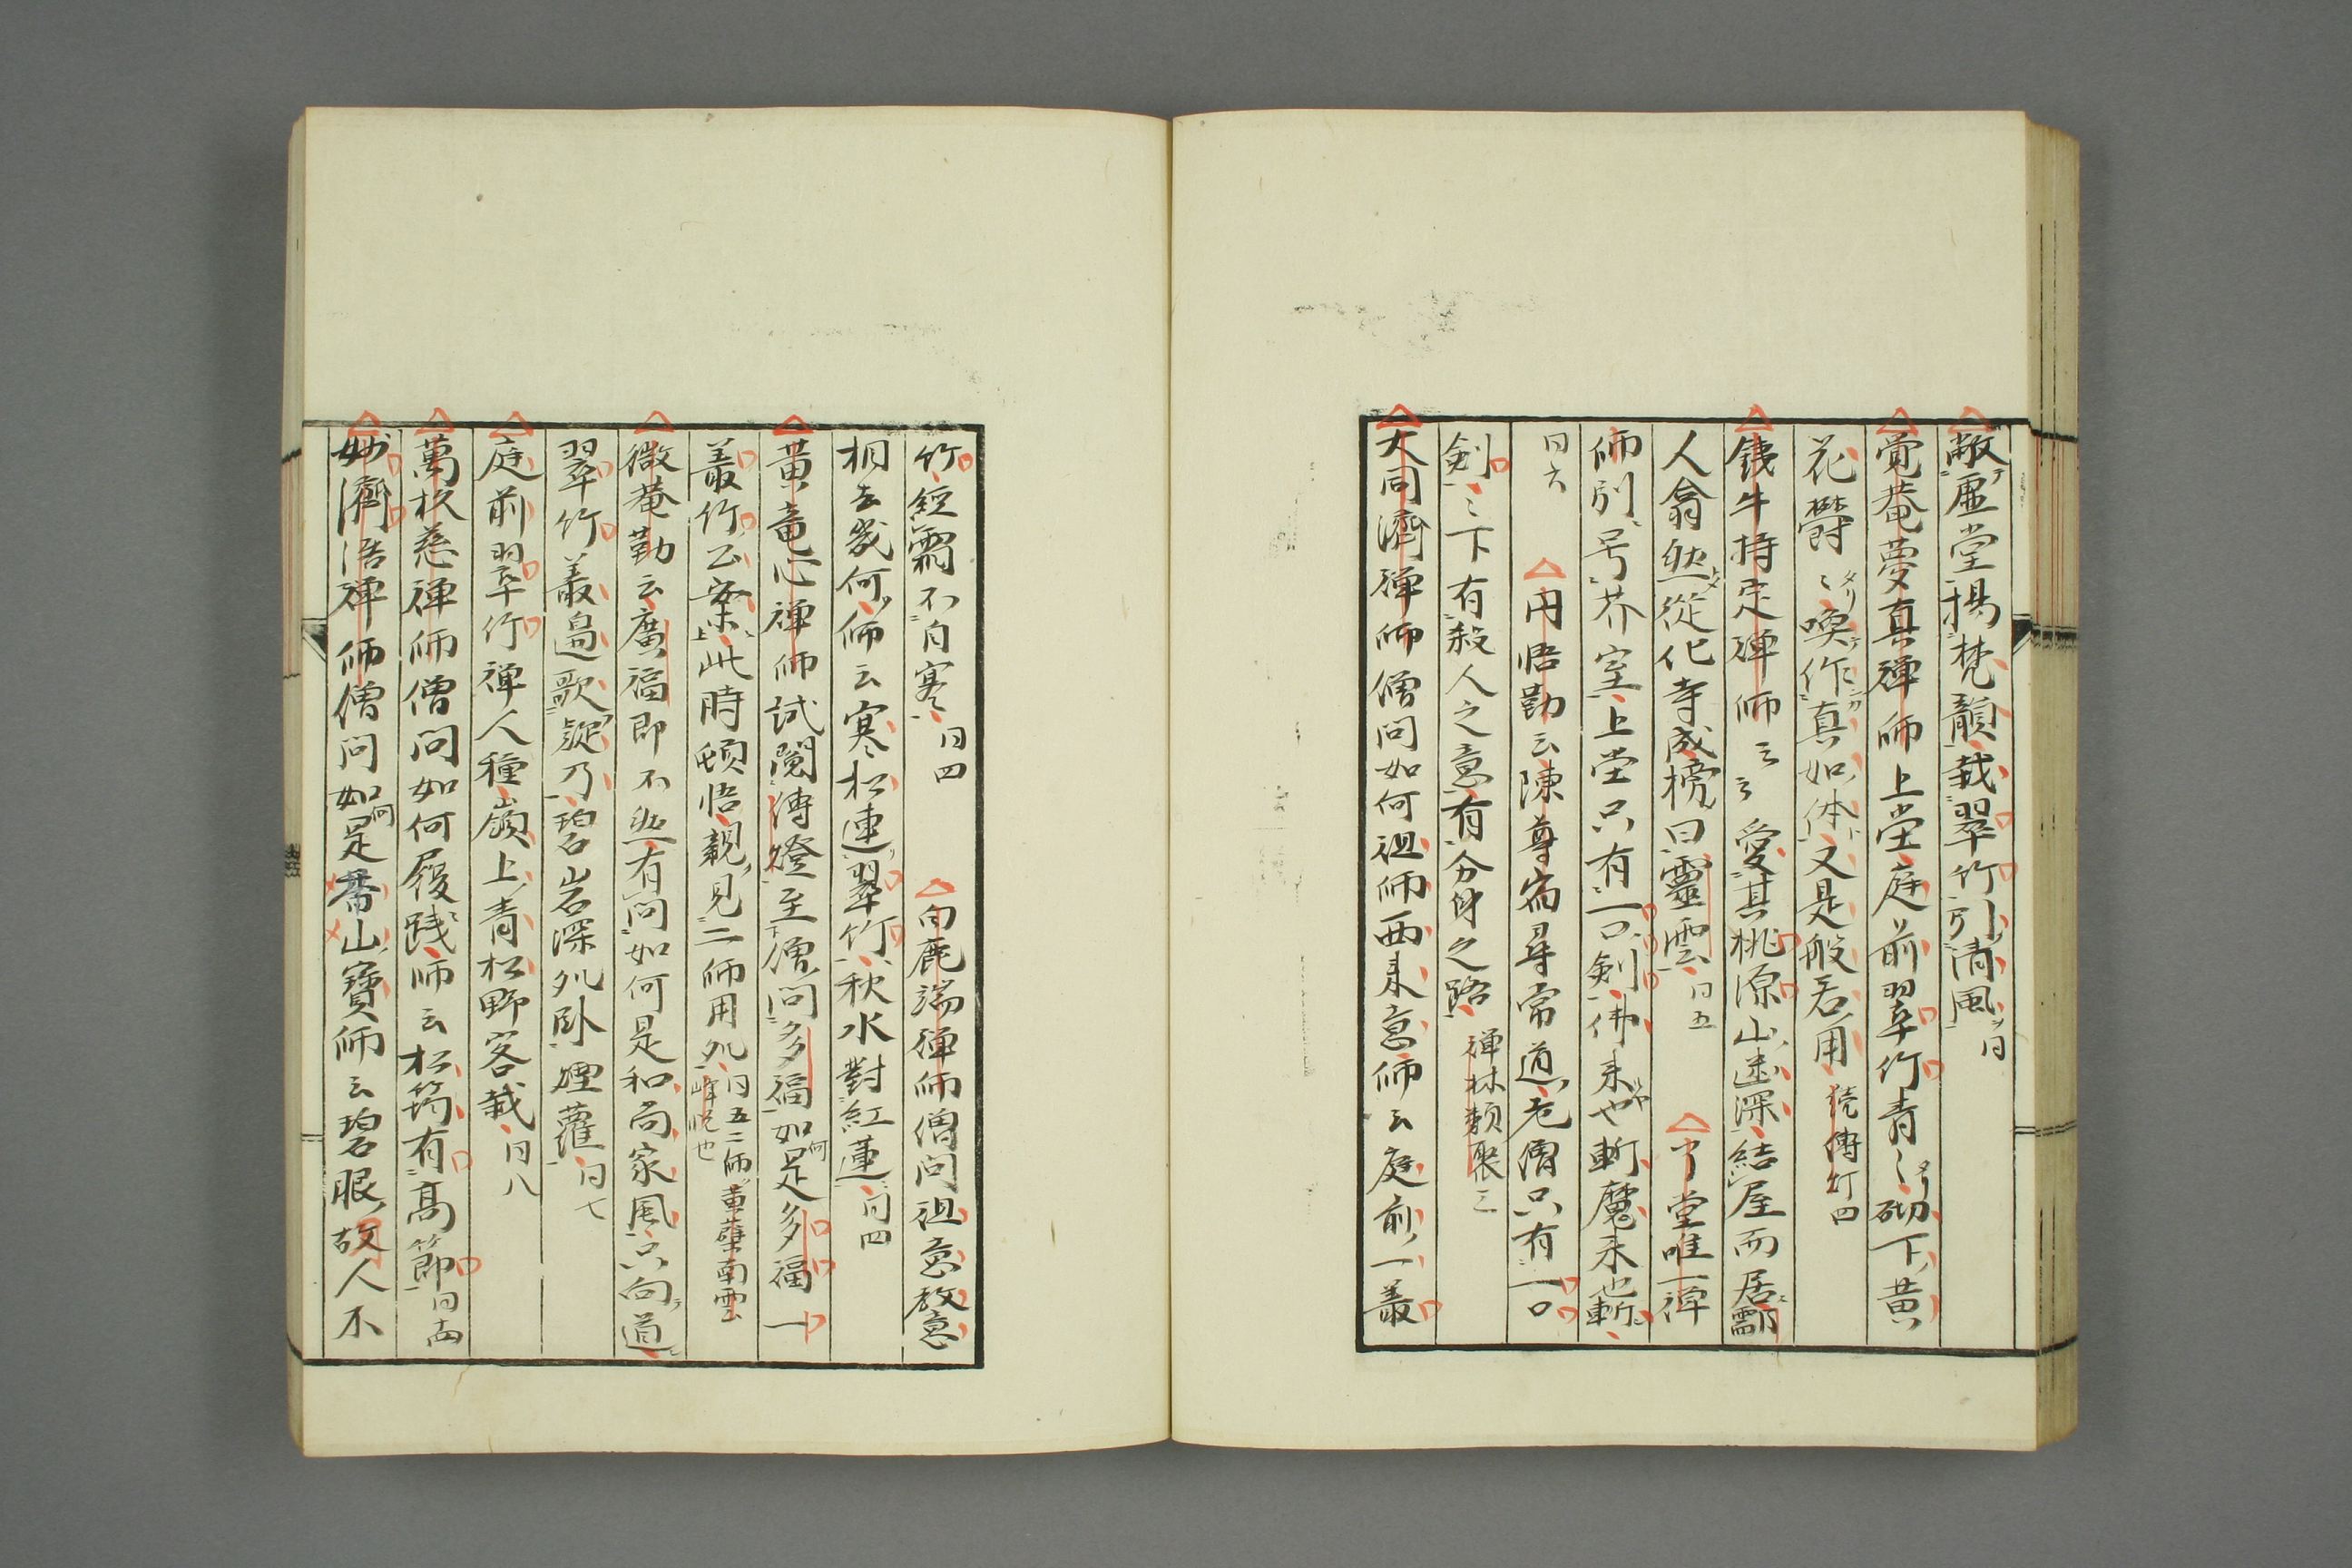 敞虚堂揚梵韻栽翠竹引清風同
覚菴夢真禅師上堂庭前翠竹青〻砌下黄
花欝〻喚作真如体又是般若用 続傳灯四
銕牛持定禅師云〻愛其桃源山迷深結屋而居酃
人翕然從化寺成榜曰靈雲同五 了堂唯一禅
師別号芥室上堂只有一口剣佛来也斬魔来也斬
同六 円悟勤云陳尊宿尋常道老僧只有一口
剣〻下有殺人之意有分身之路 禅林類聚三
大同濟禅師僧問如何祖師西来意師云庭前一叢
竹経霜不自寒同四 白鹿端禅師僧問祖意教意
相去幾何師云寒松連翠竹秋水對紅蓮同四
黄竜心禅師試閲傳燈至僧問多福如何是多福一
叢竹公案此時頓悟親見二師用処同五二師黄蘗南雲
峰悦也
微菴勤云廣福即不然有問如何是和尚家風只向道
翠竹叢邉歌欵乃碧岩深処臥煙蘿同七
庭前翠竹禅人種嶺上青松野客栽同八
萬杉慈禅師僧問如何履践師云松筠有高節同
妙濟浩禅師僧問如何是香山寶師云碧眼故人不